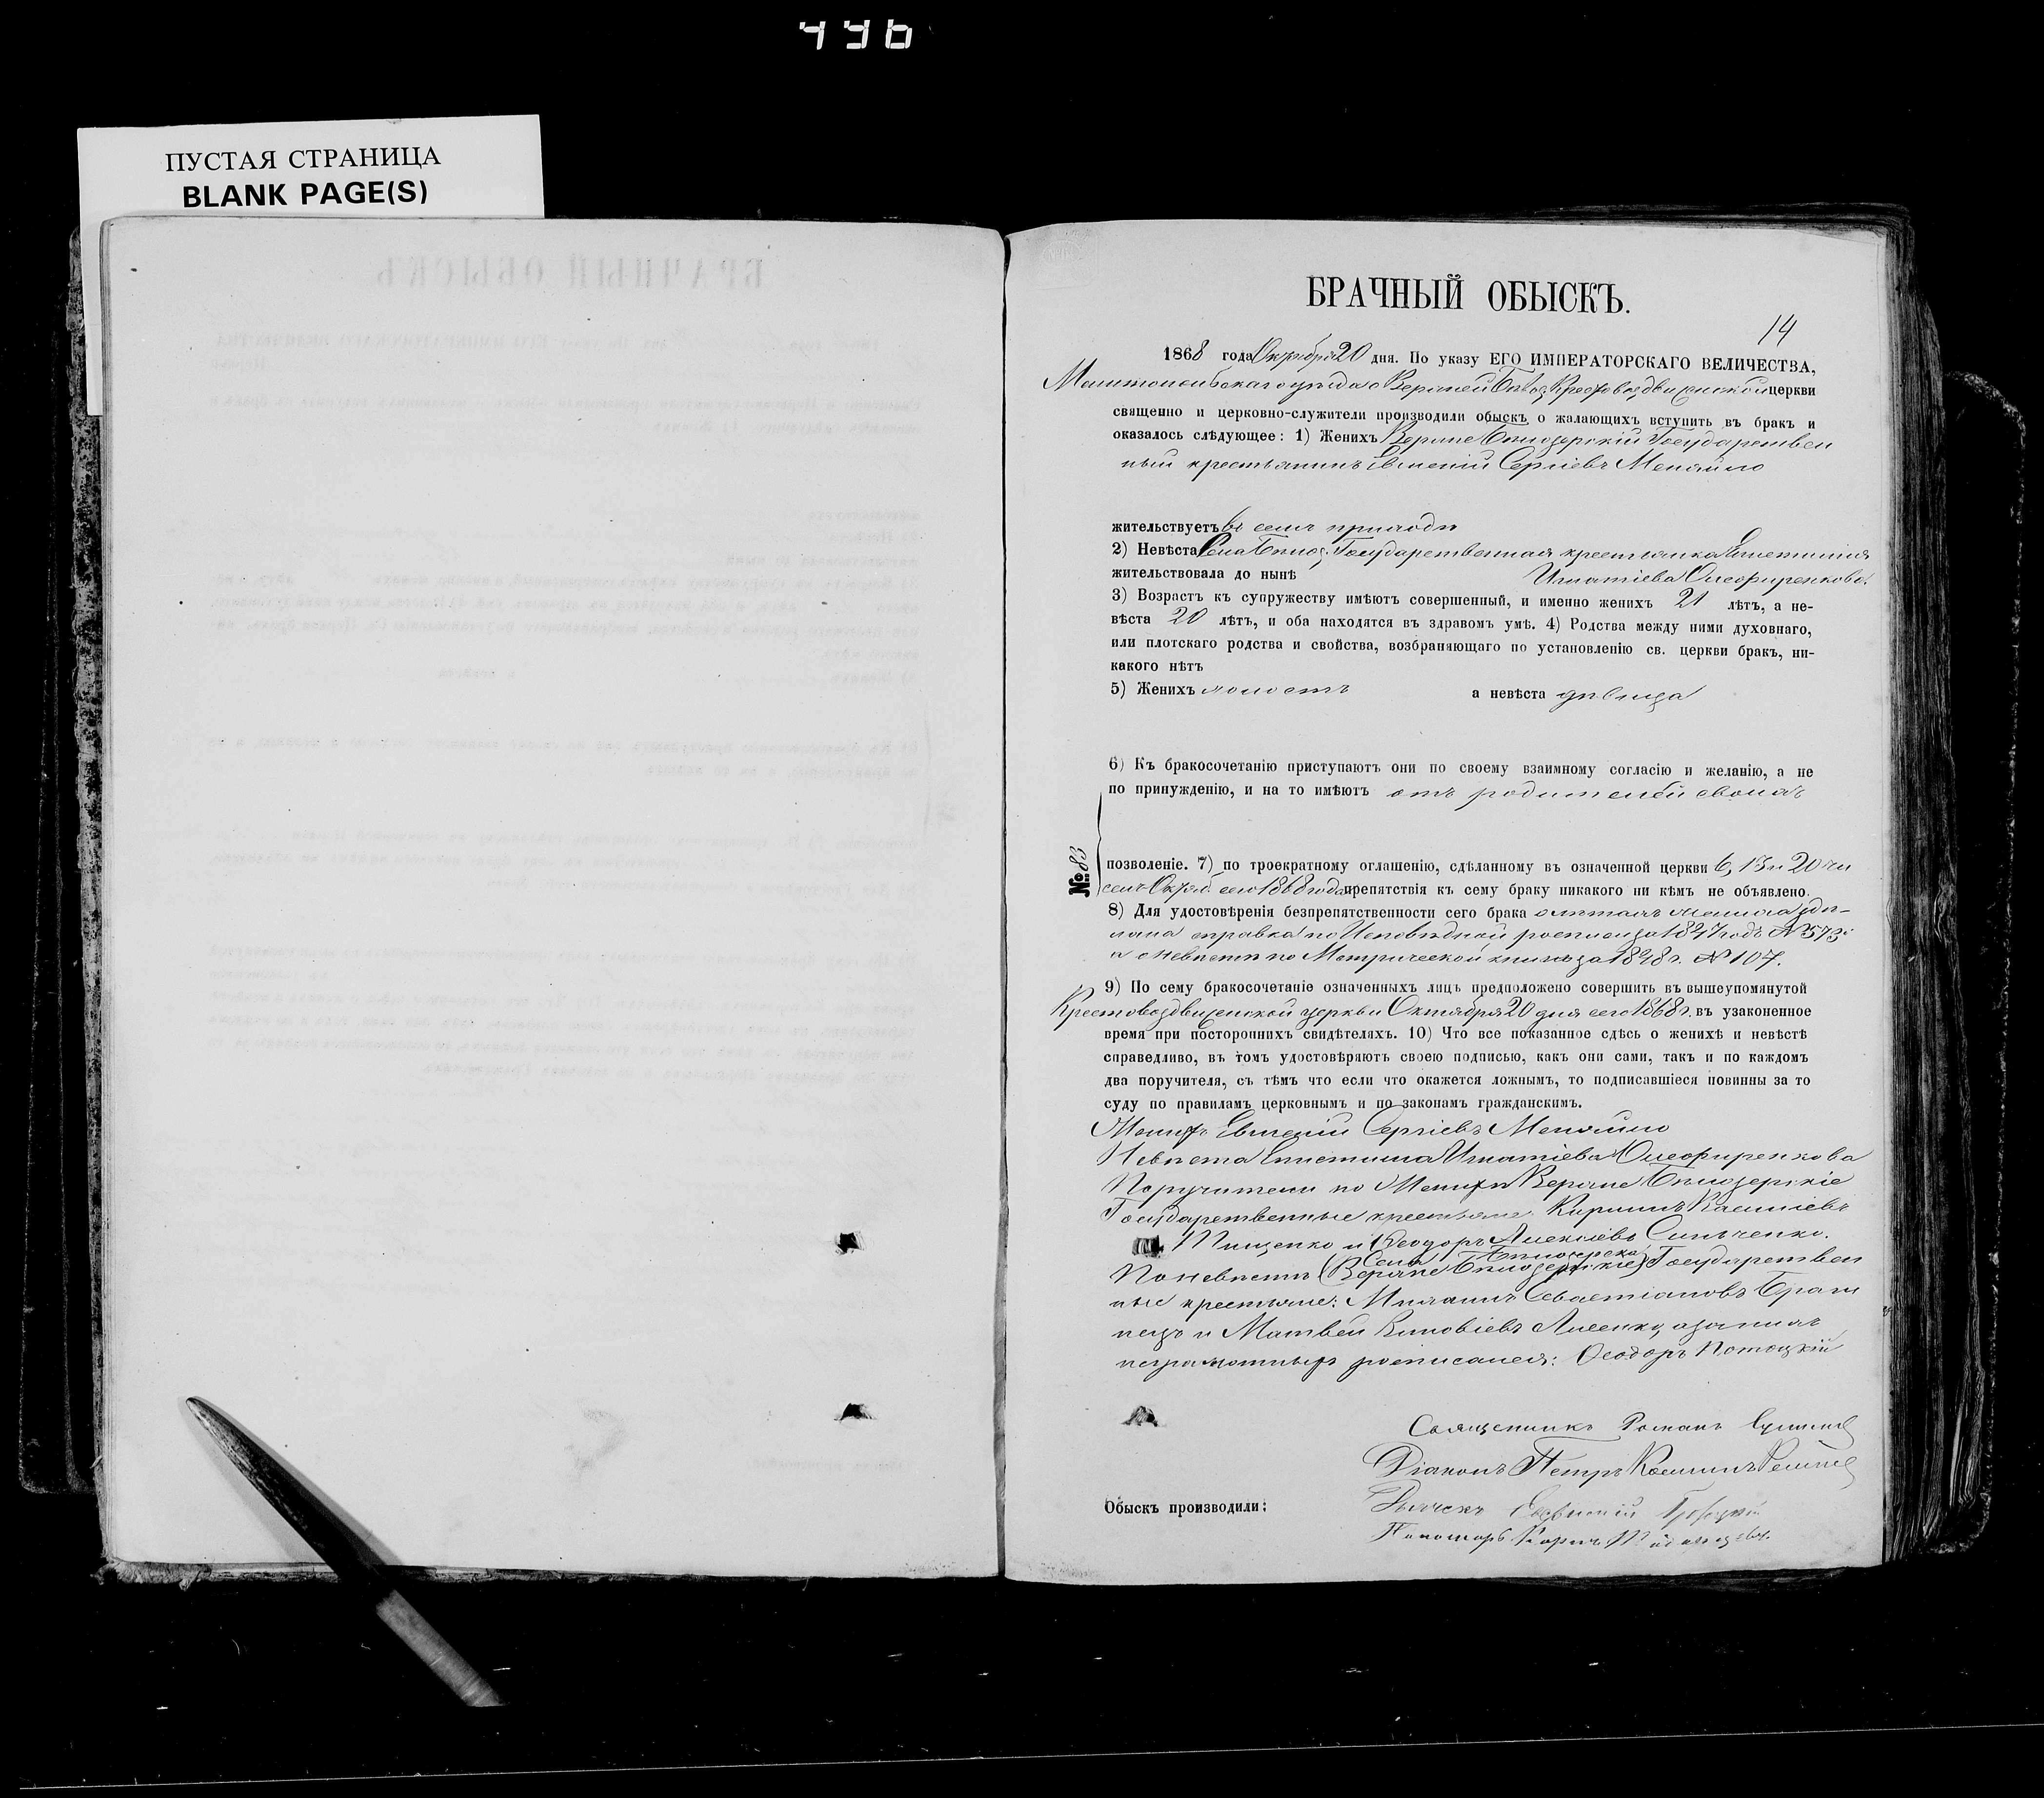 496
ПУСТАЯ СТРАНИЦА
BLANK PAGE(S)
БРАЧНЫЙ ОБЫСКЪ.
14
1868 года Октября 20 дня. По указу ЕГО ИМПЕРАТОРСКАГО ВЕЛИЧЕСТВА,
Мелитопольскаго уезда с Верхней Белоз. Крестовоздвиженской церкви
священно и церковно-служители производили обыскъ о жалающихъ вступить въ бракъ и
оказалось слѣдующее: 1) Женихъ Верхне Бѣлозерскій Государствен
ный крестьянинъ Евмений Сергіевъ Меняйло
жительствуетъ въ семъ приходѣ
2) Невѣста Села Бѣлоз. Государственная крестьянка Епистимия
жительствовала до нынѣ Игнатіева Олефиренкова.
3) Возрастъ къ супружеству имѣютъ совершенный, и именно женихъ 21 лѣтъ, а не-
вѣста 20 лѣтъ, и оба находятся въ здравомъ умѣ. 4) Родства между ними духовнаго,
или плотскаго родства и свойства, возбраняющаго по установленію св. церкви бракъ, ни-
какого нѣтъ
5) Женихъ холостъ а невѣста дѣвица
6) Къ бракосочетанію приступаютъ они по своему взаимному согласію и желанію, а не
по принужденію, и на то имѣютъ отъ родителей своихъ
№ 83
позволеніе. 7) по троекратному оглашенію, сдѣланному въ означенной церкви 6, 13 и 20 чи
селъ Октяб. сего 1868 года препятствія къ сему браку никакого ни кѣмъ не объявлено.
8) Для удостовѣренія безпрепятственности сего брака о лѣтахъ жениха здѣ-
лана справка по Исповѣдной росписи за 1847 годъ № 573
а о невѣстѣ по Метрической книгѣ за 1848 г. № 107.
9) По сему бракосочетаніе означенныхъ лицъ предположено совершить въ вышеупомянутой
Крестовоздвиженской церкви Октября 20 дня сего 1868 г. въ узаконенное
время при постороннихъ свидѣтеляхъ. 10) Что все показанное сдѣсь о женихѣ и невѣстѣ
справедливо, въ томъ удостовѣряютъ своею подписью, какъ они сами, такъ и по каждомъ
два поручителя, съ тѣмъ что если что окажется ложнымъ, то подписавшіеся повинны за то
суду по правиламъ церковнымъ и по законамъ гражданскимъ.
Женихъ Евмений Сергіевъ Меняйло
Невѣста Епистимия Игнатіева Олефиренкова
Поручители по Женихѣ Верхне Бѣлозерскіе
Государственные крестьяне: Кириллъ Василіевъ
Пищенко и Феодоръ Алексіевъ Сильченко.
Села Бѣлозерска
По невѣстѣ (Верхне Бѣлозерскіе) Государствен
ные крестьяне: Михаилъ Севастіановъ Браги
нецъ и Матвей Зиновіевъ Лисенко, а за нихъ
неграмотныхъ росписался: Феодоръ Потоцкій
Священникъ Романъ
Діаконъ Петръ
Дьячекъ Евфимий
Обыскъ производили:
Пономарь